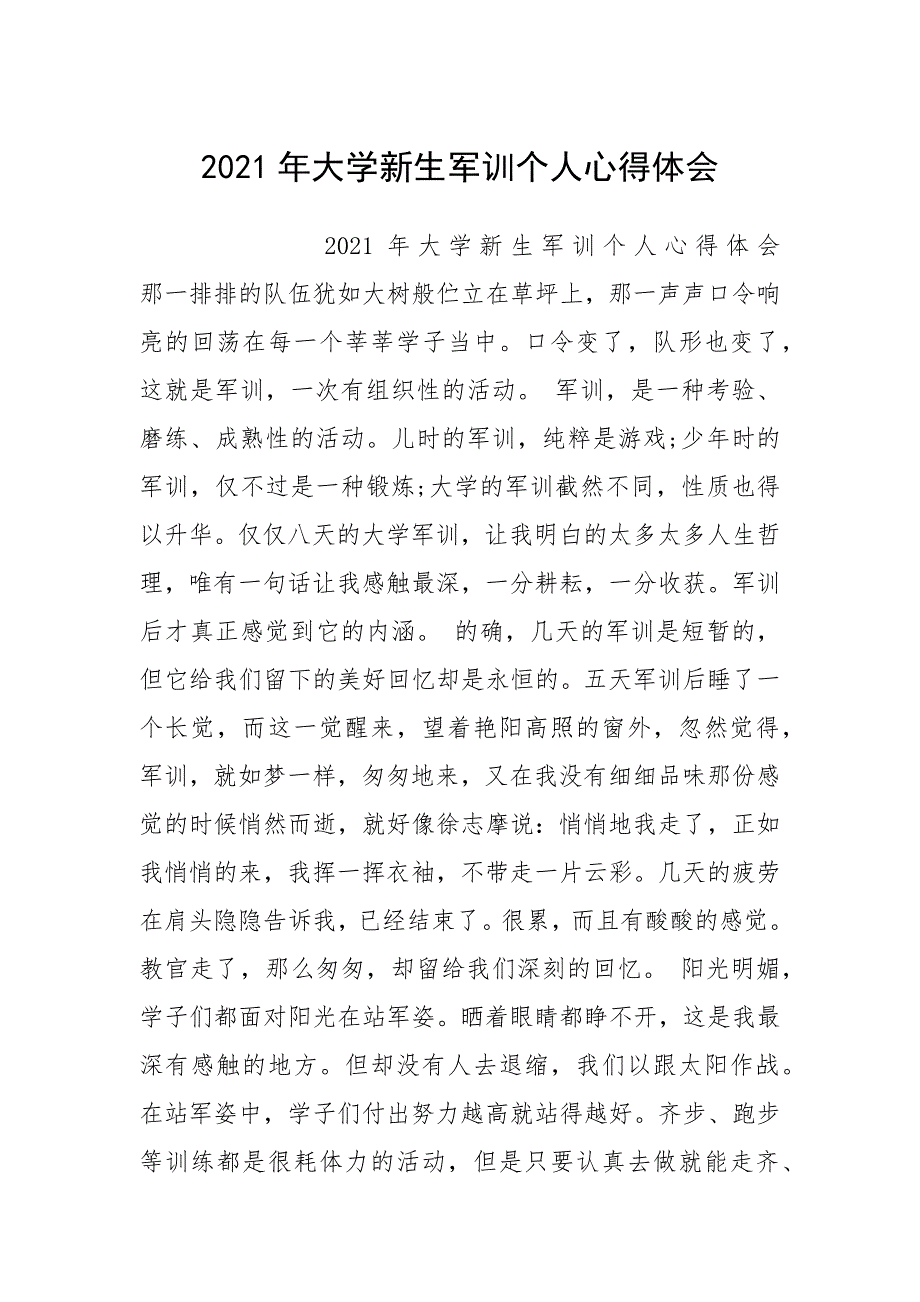 2021 年大学新生军训个人心得体会
2021 年大学新生军训个人心得体会
那一排排的队伍犹如大树般伫立在草坪上，那一声声口令响
亮的回荡在每一个莘莘学子当中。口令变了，队形也变了，
这就是军训，一次有组织性的活动。 军训，是一种考验、
磨练、成熟性的活动。儿时的军训，纯粹是游戏;少年时的
军训，仅不过是一种锻炼;大学的军训截然不同，性质也得
以升华。仅仅八天的大学军训，让我明白的太多太多人生哲
理，唯有一句话让我感触最深，一分耕耘，一分收获。军训
后才真正感觉到它的内涵。 的确，几天的军训是短暂的，
但它给我们留下的美好回忆却是永恒的。五天军训后睡了一
个长觉，而这一觉醒来，望着艳阳高照的窗外，忽然觉得，
军训，就如梦一样，匆匆地来，又在我没有细细品味那份感
觉的时候悄然而逝，就好像徐志摩说：悄悄地我走了，正如
我悄悄的来，我挥一挥衣袖，不带走一片云彩。几天的疲劳
在肩头隐隐告诉我，已经结束了。很累，而且有酸酸的感觉。
教官走了，那么匆匆，却留给我们深刻的回忆。 阳光明媚，
学子们都面对阳光在站军姿。晒着眼睛都睁不开，这是我最
深有感触的地方。但却没有人去退缩，我们以跟太阳作战。
在站军姿中，学子们付出努力越高就站得越好。齐步、跑步
等训练都是很耗体力的活动，但是只要认真去做就能走齐、